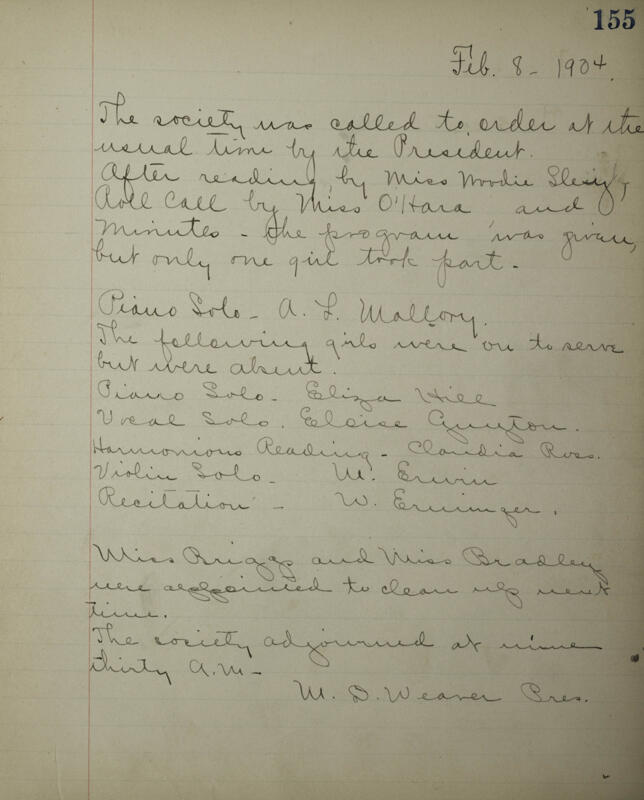 155
Feb. 8 - 1904.
The society was called to order at the
usual time by the President.
After reading by Miss Woodie
Roll Call by Miss O'Hara and
Minutes - the program was given,
but only one girl took part.
Piano Solo - A. L. Mallory.
The following girls were on to serve
but were absent.
Piano Solo - Eliza Hill
Vocal Solo. Eloise Guyton.
Harmonious Reading - Claudia Ross.
Violin Solo - M. Erwin
Recitation - W.
Miss Briggs and Miss Bradley
were appointed to clean up next
time.
The society adjourned at nine
thirty A.M -
M. D. Weaver Pres.